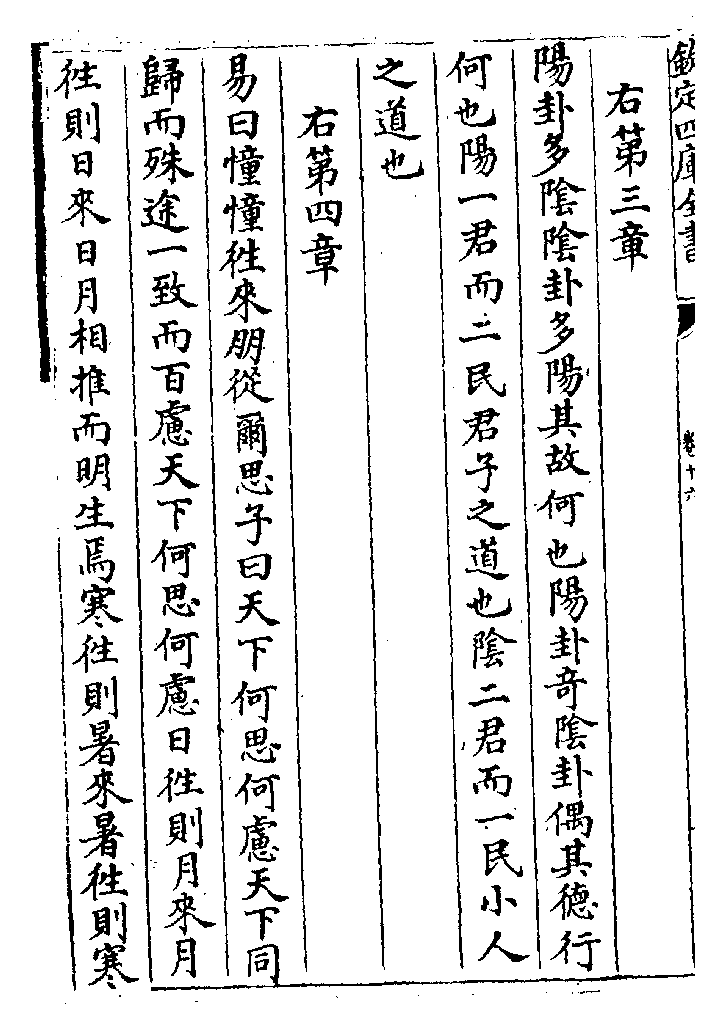 欽定四庫全書
卷十六
右第三章
陽卦多陰陰卦多陽其故何也陽卦竒陰卦偶其德行
何也陽一君而二民君子之道也陰二君而一民小人
之道也
右第四章
易曰憧憧徃來朋從爾思子曰天下何思何慮天下同
歸而殊途一致而百慮天下何思何慮日徃則月來月
徃則日來日月相推而明生焉寒徃則暑來暑徃則寒